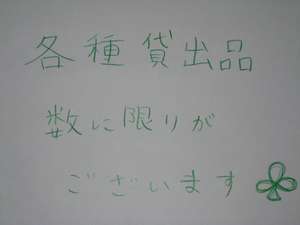 各種貸出品
数に限りが
ございます